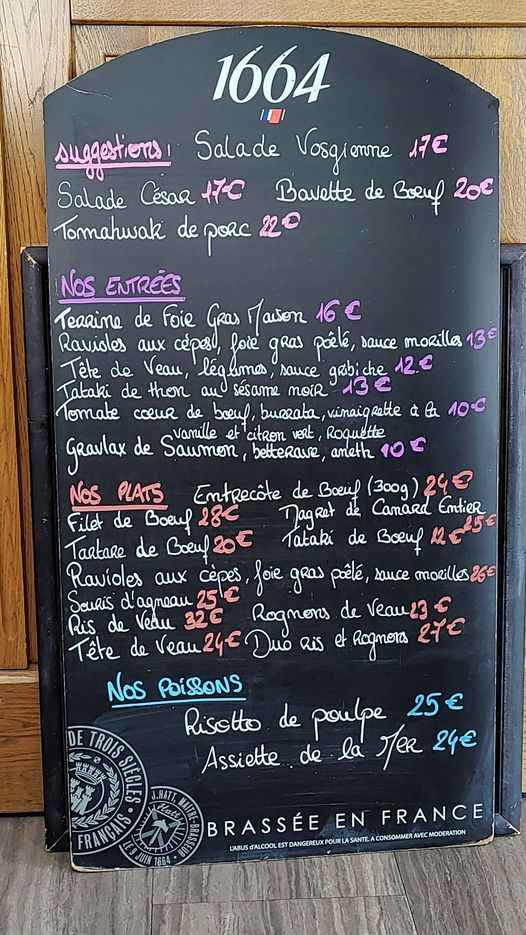 1664
Suggestions: Salade Vosgienne 17€
Salade César 17€ Bavette de Boeuf 20€
Tomahwak de porc 22€
NOS ENTRÉES
Terrine de Foie Gras Maison 16€
Ravioles aux cèpes, foie gras pôêlé, sauce morilles 13€
Tête de Veau, légumes, sauce gribiche 12€
Tataki de thon au sésame noir 13€
Tomate coeur de boeuf, burrata, vinaigrette à la 10€
vanille et citron vert, Roquette
Gravlax de Saumon, betterave, aneth 10€
NOS PLATS Entrecôte de Boeuf (300g) 24€
Filet de Boeuf 28€ Magret de Canard Entier
25€
Tartare de Boeuf 20€ Tataki de Boeuf 22€
Ravioles aux cèpes, foie gras pôêlé, sauce morilles 26€
Souris d'agneau 25€
Ris de Veau 32€ Rognons de Veau 23€
Tête de Veau 24€ Duo Ris et Rognons 27€
NOS POISSONS
Risotto de poulpe 25€
Assiette de la Mer 24€
DE TROIS SIÈCLES
FRANÇAIS
J. HATT, MAITRE-BRASSEUR
LE 9 JUIN 1664
BRASSÉE EN FRANCE
L'ABUS d'ALCOOL EST DANGEREUX POUR LA SANTÉ, A CONSOMMER AVEC MODERATION